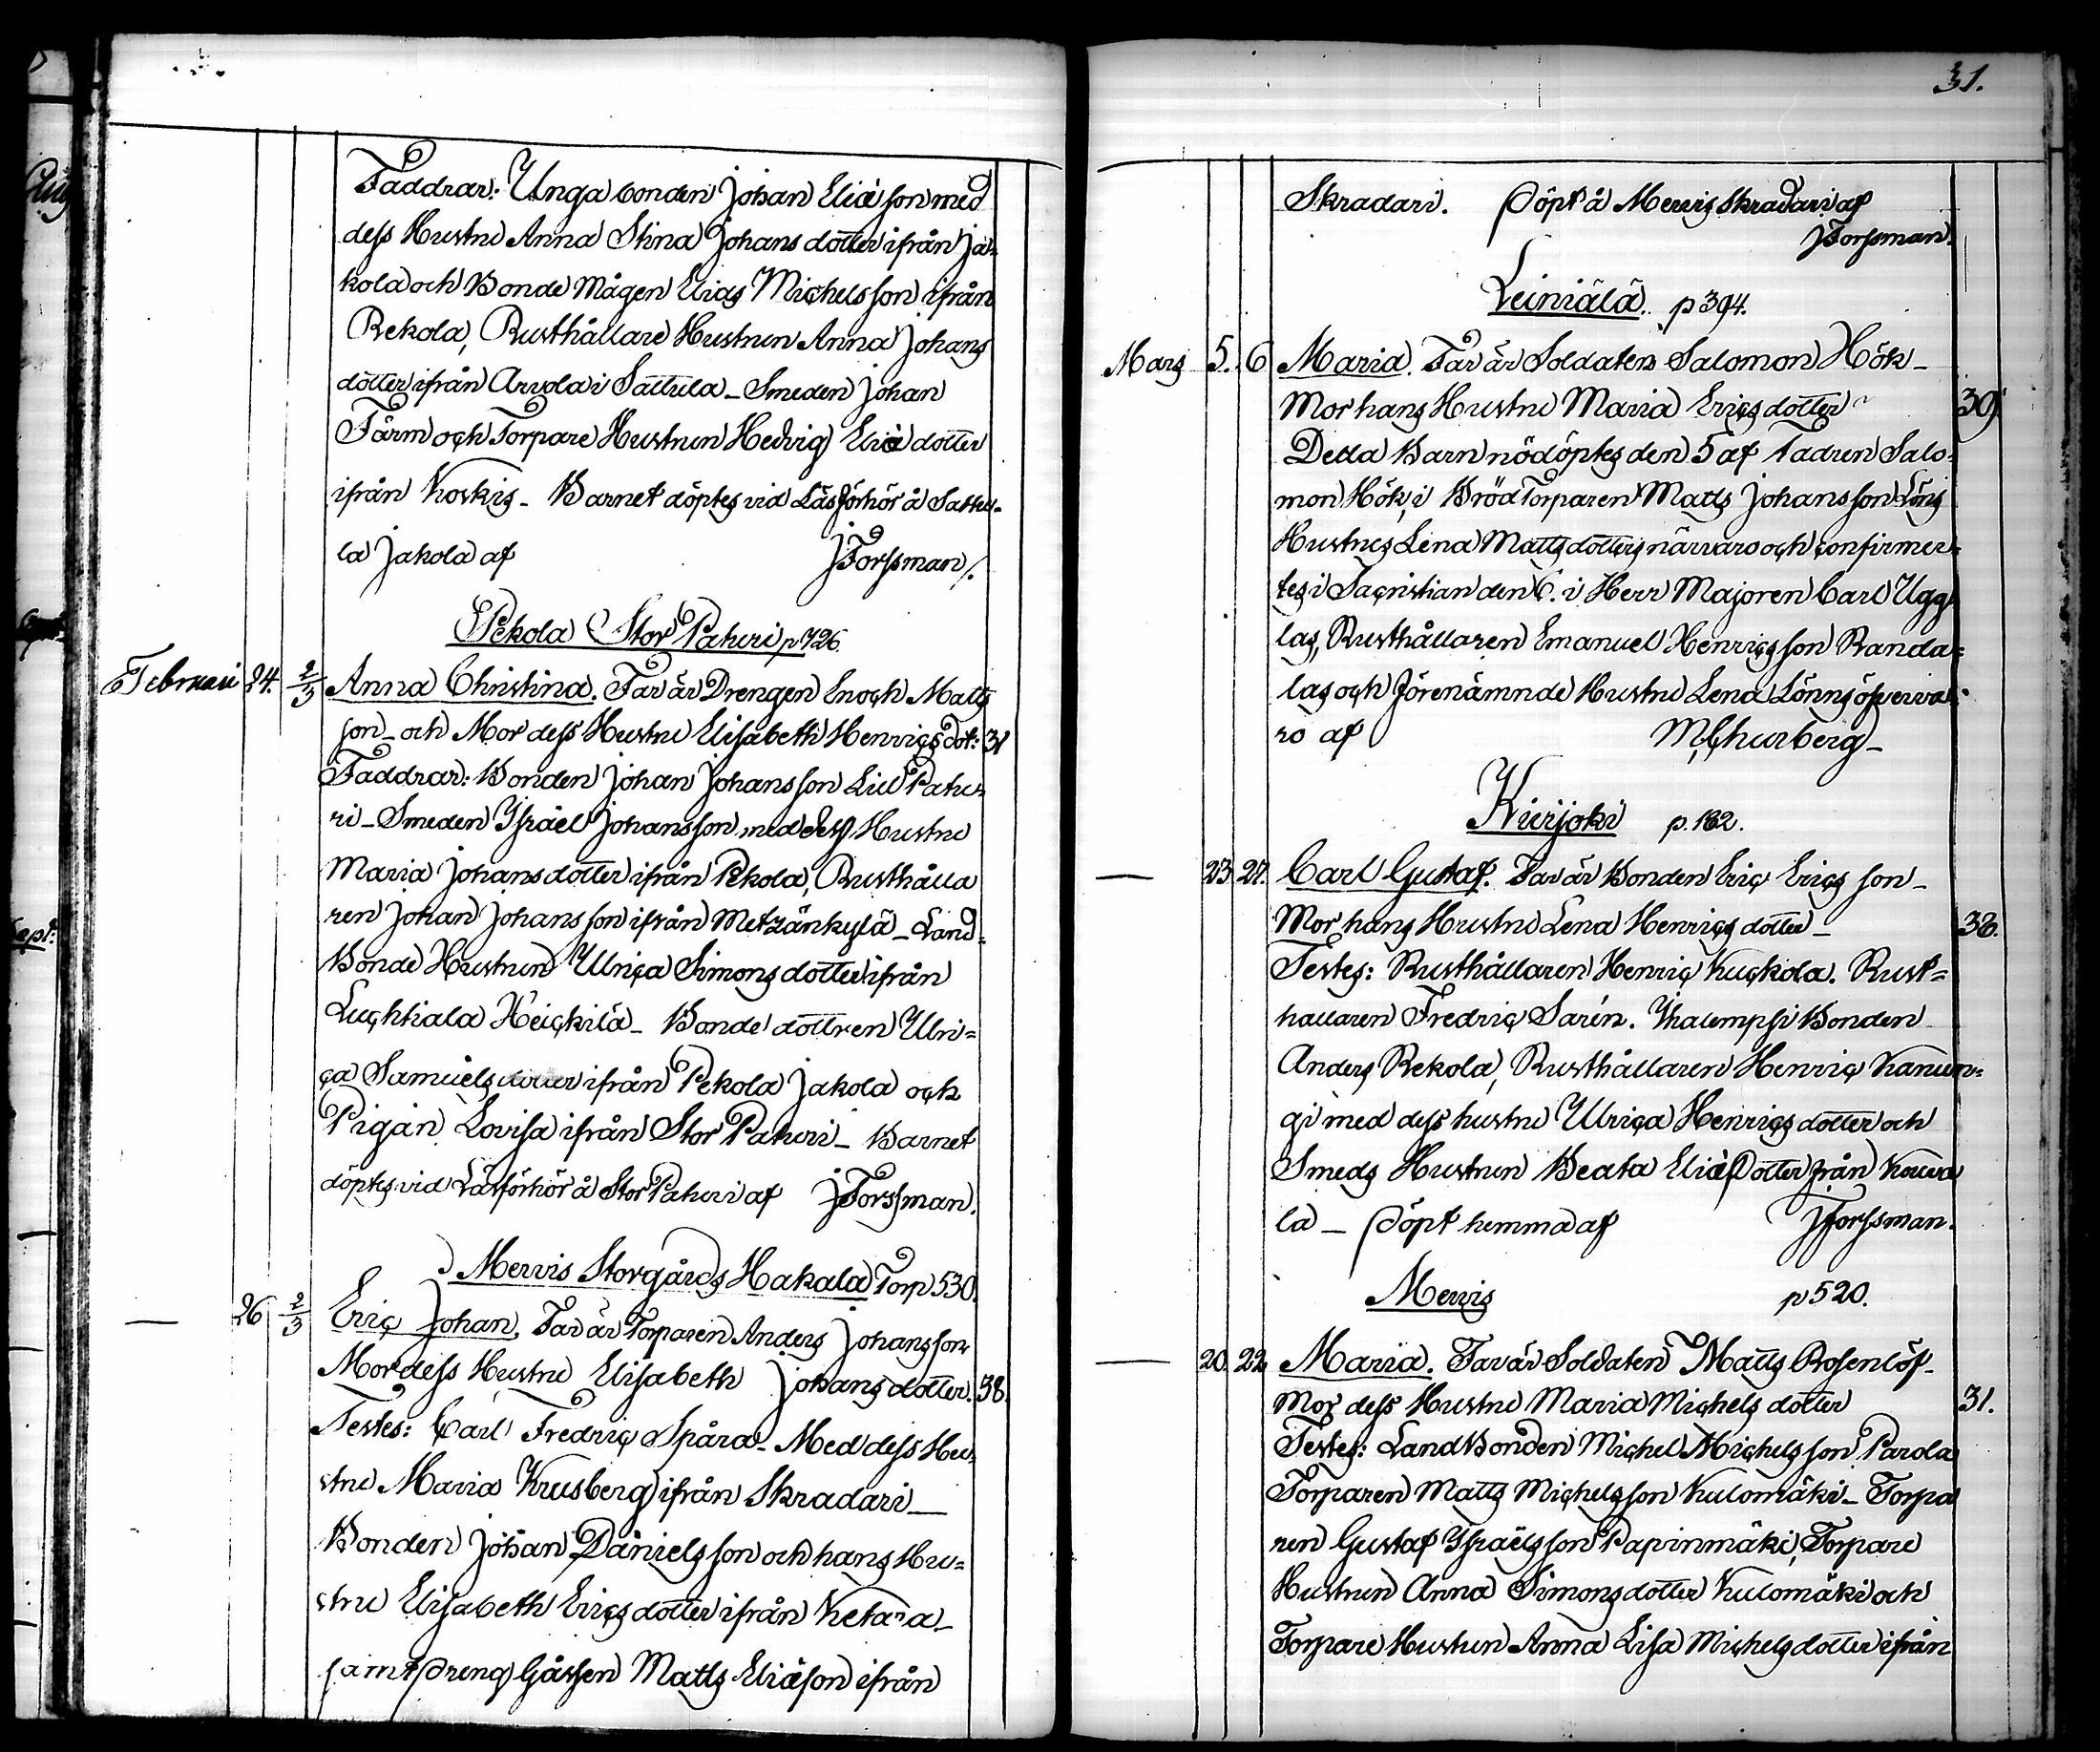 Faddrar: Unga bonden Johan Eliæson med
dess Hustru Anna Stina Johans dotter ifrån Ja-
kola och Bonde Mågen Elias Michelsson ifrån
Rekola, Rusthållare Hustrun Anna Johans
dotter ifrån Arvola i Sattula _ Smeden Johan
Färm och Torpare Hustrun Hedvig Eliæ dotter
ifrån Koskis _ Barnet döptes vid Läsförhör å Sattu-
la Jakola af JForssman /.
Pekola Stor Paturi p 726.
Februari 24. 2/3 Anna Christina. Far är Drengen Enoch Matts
son _ och Mor dess Hustru Elisabeth Henrics dot: 31
Faddrar: Bonden Johan Johansson Lill Patu-
ri _ Smeden Israël Johansson med dess Hustru
Maria Johansdotter ifrån Pekola, Rusthålla
ren Johan Johansson ifrån Metzänkylä _ Land-
Bonde Hustrun Ulrica Simons dotter ifrån
Luchtiala Heickilä _ Bonde dottren Ulri=
ca Samuels ifrån Pekola Jakola och
Pigan Lovisa ifrån Stor Paturi _ Barnet
döptes vid Läsförhör å Stor Paturi af JForssman.
Mervis Storgårds Hakala Torp 530.
— 26 2/3 Eric Johan. Far är Torparen Anders Johansson
Mor dess Hustru Elisabeth Johans dotter. 38.
Testes: Carl Fredric Spåra _ Med dess Hu-
stru Maria Krusberg ifrån Skradari _
Bonden Johan Danielsson och hans Hu=
stru Elisabeth Erics dotter ifrån Ketara _
samt Dreng Gåssen Matts Eliæson ifrån
31.
Skradari. Döpt å Mervis Skradari af
JForssman.
Leiniälä. p 394.
Mars 5. 6 Maria. Far är Soldaten Salomon Hök _
Mor hans Hustru Maria Erics dotter 39.
Detta Barn nöddöptes den 5 af Fadren Salo-
mon Hök, i BrödTorparen Matts Johansson Löns
Hustrus Lena Matts dotters närvaro och confirmer=
tes i Sacristian den 6. i Herr Majoren Carl Ugg
las, Rusthållaren Emanuel Henricsson Randa=
las och förenämnde Hustru Lena Lönns öfverva-
ro af MChurberg _
Kirijoki p. 182.
— 23 27. Carl Gustaf. Far är Bonden Eric Erics son _
Mor hans Hustru Lena Henrics dotter _ 38.
Testes: Rusthållaren Henric Kuckola. Rust=
hållaren Fredric Sarén. Thalempsi Bonden
Anders Rekola, Rusthållaren Henric Kanun-
gi med dess hustru Ulrica Henrics dotter och
Smeds Hustrun Beata Eliæ Dotter från Kouva
la _ Döpt hemma af JForssman.
Mervis p 520.
— 20. 22 Maria. Far är Soldaten Matts Rosenlöf _
Mor dess Hustru Maria Michels dotter 31.
Testes: LandBonden Michel Michelsson Parola
Torparen Matts Michelsson Kulomäki _ Torpa
ren Gustaf Israëlsson Papinmäki, Torpare
Hustrun Anna Simons dotter Kulomäki och
Torpare Hustrun Anna Lisa Michelsdotter ifrån